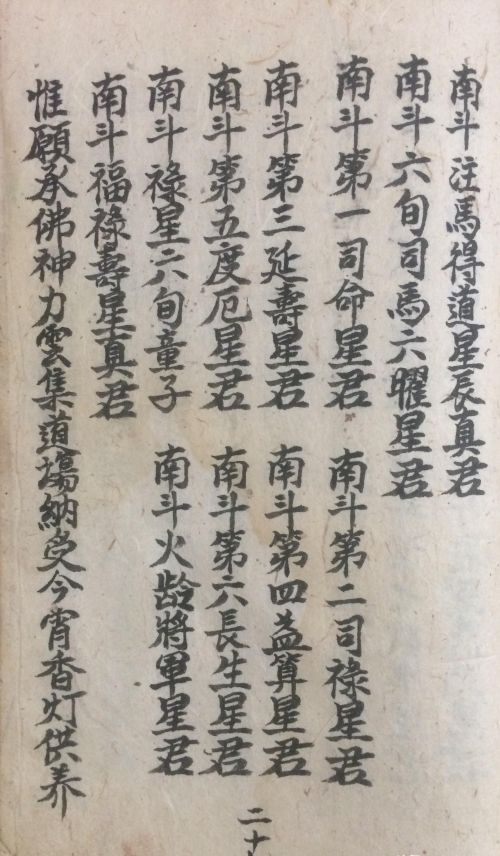 南斗注馬得道星辰真君
南斗六旬司馬六曜星君
南斗第一司命星君
南斗第二司禄星君
南斗第三延壽星君
南斗第四益算星君
南斗第五度厄星君
南斗第六長生星君
南斗禄星六旬童子
南斗火龄將軍星君
南斗福禄壽星真君
惟願承佛神力雲集道場納受今宵香灯供养
二十